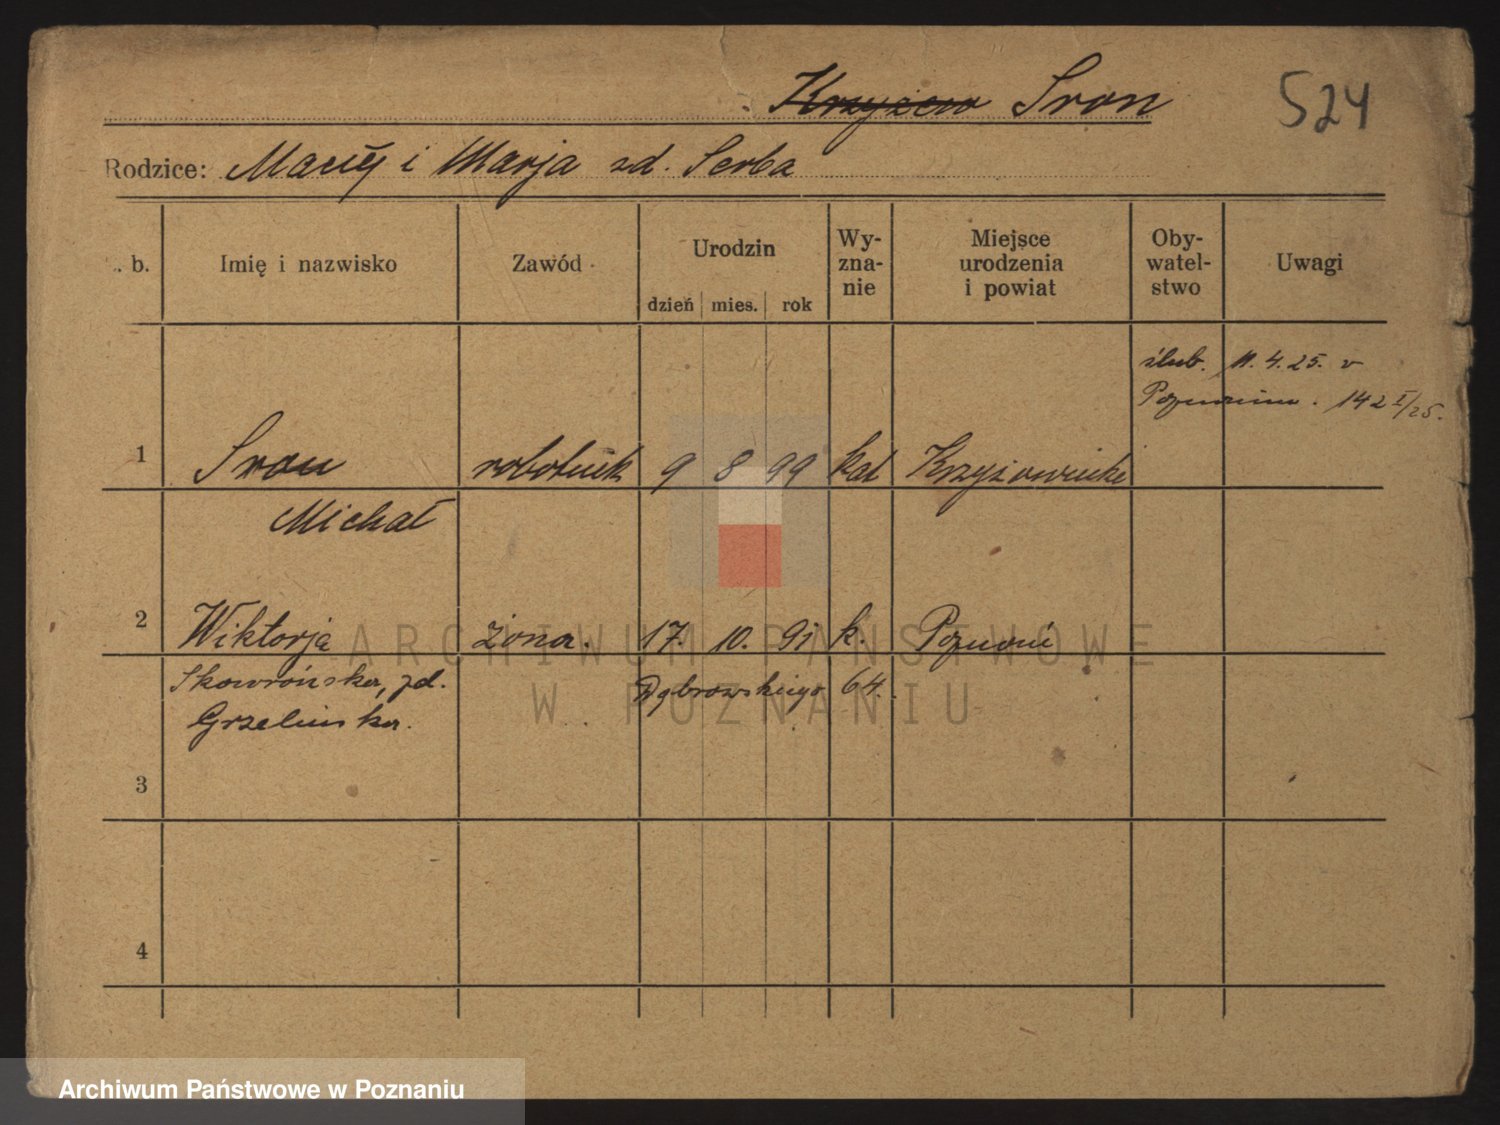 Krzyżow Sron 524
Rodzice: Maciej i Marja zd. Serba
. b. Imię i nazwisko Zawód Urodzin dzień mies. rok Wy-zna-nie Miejsce urodzenia i powiat Oby-watel-stwo Uwagi
ślub. 11.4.25. w
Poznaniu. 142 I/25.
1 Sron robotnik 9 8 99 kat Krzyżowniki
Michał
2 Wiktorja żona. 17. 10. 91 k. Poznań
Skowrońska, zd. Dąbrowskiego 64.
Grzelinska.
3
4
ARCHIWUM PAŃSTWOWE
W POZNANIU
Archiwum Państwowe w Poznaniu